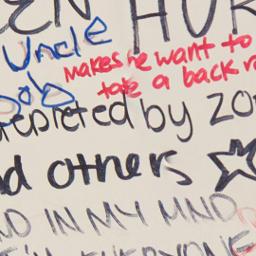 EN HUR
Uncle
Bob
makes me want to
take a back r
depicted by ZO
d others
ND IN MY MIND
I'M EVERYONE